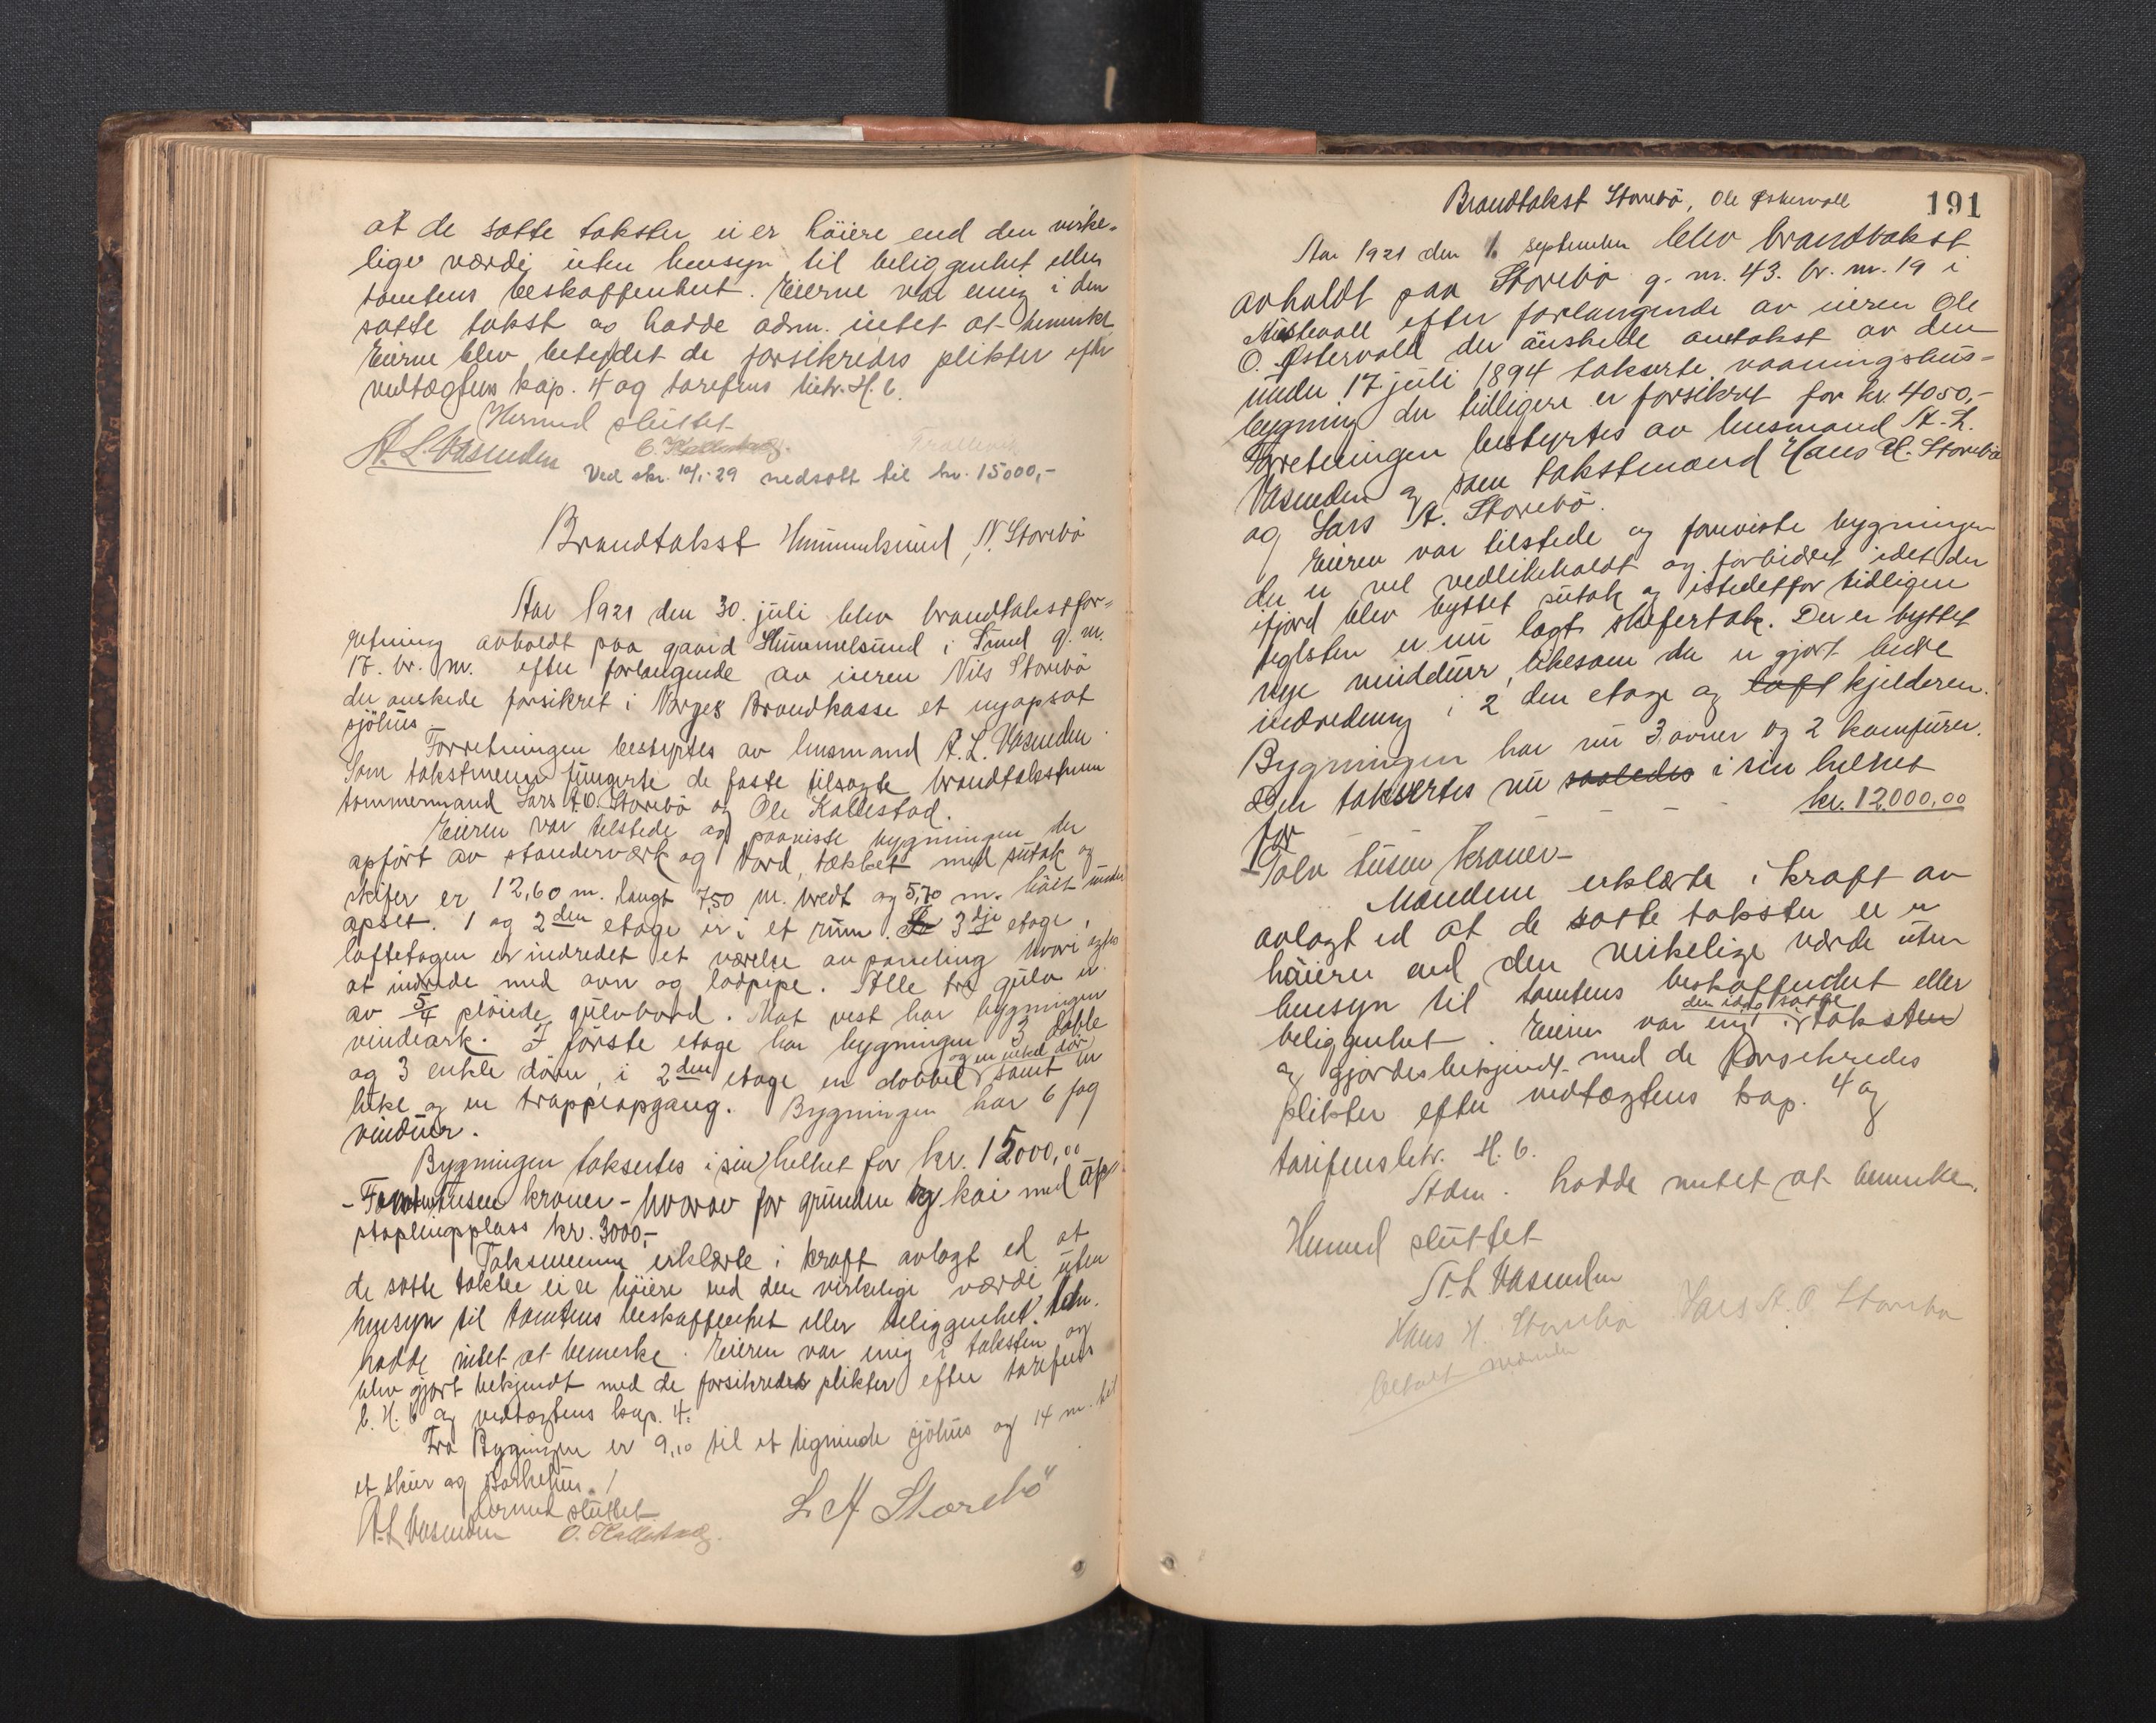 at de satte takster ei er höiere end den virke-
lige værdi uten hensyn til beliggenhet eller
tomtens beskaffenhet. Eierne var enig i den
satte takst og hadde adm. intet at bemerke
Eierne blev betydet de forsikredes plikter efter
vedtægtens kap. 4 og tarefens litr. H. 6.
Hermed sluttet
A. L. Vasenden O. Kallestad.
Ved skr. 10/1-29 nedsatt til kr. 15000,-
Brandtakst Hummelsund, N. Storebö
Aar 1921 den 30. juli blev brandtakstfor-
retning avholdt paa gaard Hummelsund i Sund g. nr.
17. br. nr. efter forlangende av eieren Nils Storebö
der önskede forsikret i Norges Brandkasse et nyopsat
sjöhus.
Forretningen bestyrtes av lensmand A. L. Vasenden.
Som takstmenn fungerte de faste tilsagte brandtakstmenn
tömmermand Lars A. O. Storebö og Ole Kallestad.
Eieren var tilstede og paaviste bygningen der
opfört av standerværk og bord, tækket med sutak og
skifer er 12,60 m. langt 750 m. bredt og 5,70 m. höit under
opset. 1 og 2den etage er i et rum. 3dje etage,
loftetagen er indredet et værelse av paneling hvori agtes
at indrede med ovn og lodpipe. Alle tre gulv er
av 5/4 plöiede gulvbord. Mot vest har bygningen
vindeark. I förste etage har bygningen 3 doble
og 3 enkle döre, i 2den etage en dobbel og en enkel dör samt en
luke og en trappeopgang. Bygningen har 6 fag
vinduer.
Bygningen takseres i sin helhet for kr. 15000,00
- Femtentusen kroner - hvorav for grunden og kai med op-
staplingsplass kr. 3000,-
Taksmenn erklærte i kraft avlagt ed at
de satte takster ei er höiere end den virkelige værdi uten
hensyn til tomtens beskaffenhet eller beliggenhet. Adm.
hadde intet at bemerke. Eieren var enig i taksten og
blev gjort bekjendt med de forsikredes plikter efter tarefens
l. H. 6 og vedtægtens kap. 4.
Fra Bygningen er 9,10 til et lignende sjöhus og 14 m. til
et skur og Barkehus.
Hermed sluttet
A. L. Vasenden O. Kallestad. L. A Storebö
Brandtakst Storebö, Ole Østervold 191
Aar 1921 den 1. september blev brandtakst
avholdt paa Storebö g. nr. 43. br. nr. 19 i
Austevoll efter forlangende av eieren Ole
O. Østervold der önskede omtakst av den
under 17. juli 1894 takserte vaaningshus-
bygning der tidligere er forsikret for kr. 4050,-
Forretningen bestyrtes av lensmand A. L.
Vasenden og som takstmænd Hans H. Storebö
og Lars A. Storebö.
Eieren var tilstede og foreviste bygningen
der er vel vedlikeholdt og forbedret idet der
ifjord blev byttet sutak og istedetfor tidligere
teglsten er nu lagt skifertak. Der er byttet
nye vinduer, likesom der er gjort bedre
indredning i 2 den etage og loft kjelderen.
Bygningen har nu 3 ovner og 2 komfurer.
Den takseres nu saaledes i sin helhet
for - - - kr. 12.000,00
- Tolv tusen kroner -
Mændene erklærte i kraft av
avlagt ed at de satte takster ei er
höiere end den virkelige værde uten
hensyn til tomtens beskaffenhet eller
beliggenhet. Eieren var enig i den idag satte taksten
og gjordes bekjendt med de forsekredes
plikter efter vedtægtens kap. 4 og
tarifens litr. H. 6.
Adm. hadde intet at bemerke.
Hermed sluttet
A. L Vasenden
Hans H. Storebö Lars A. O Storebö